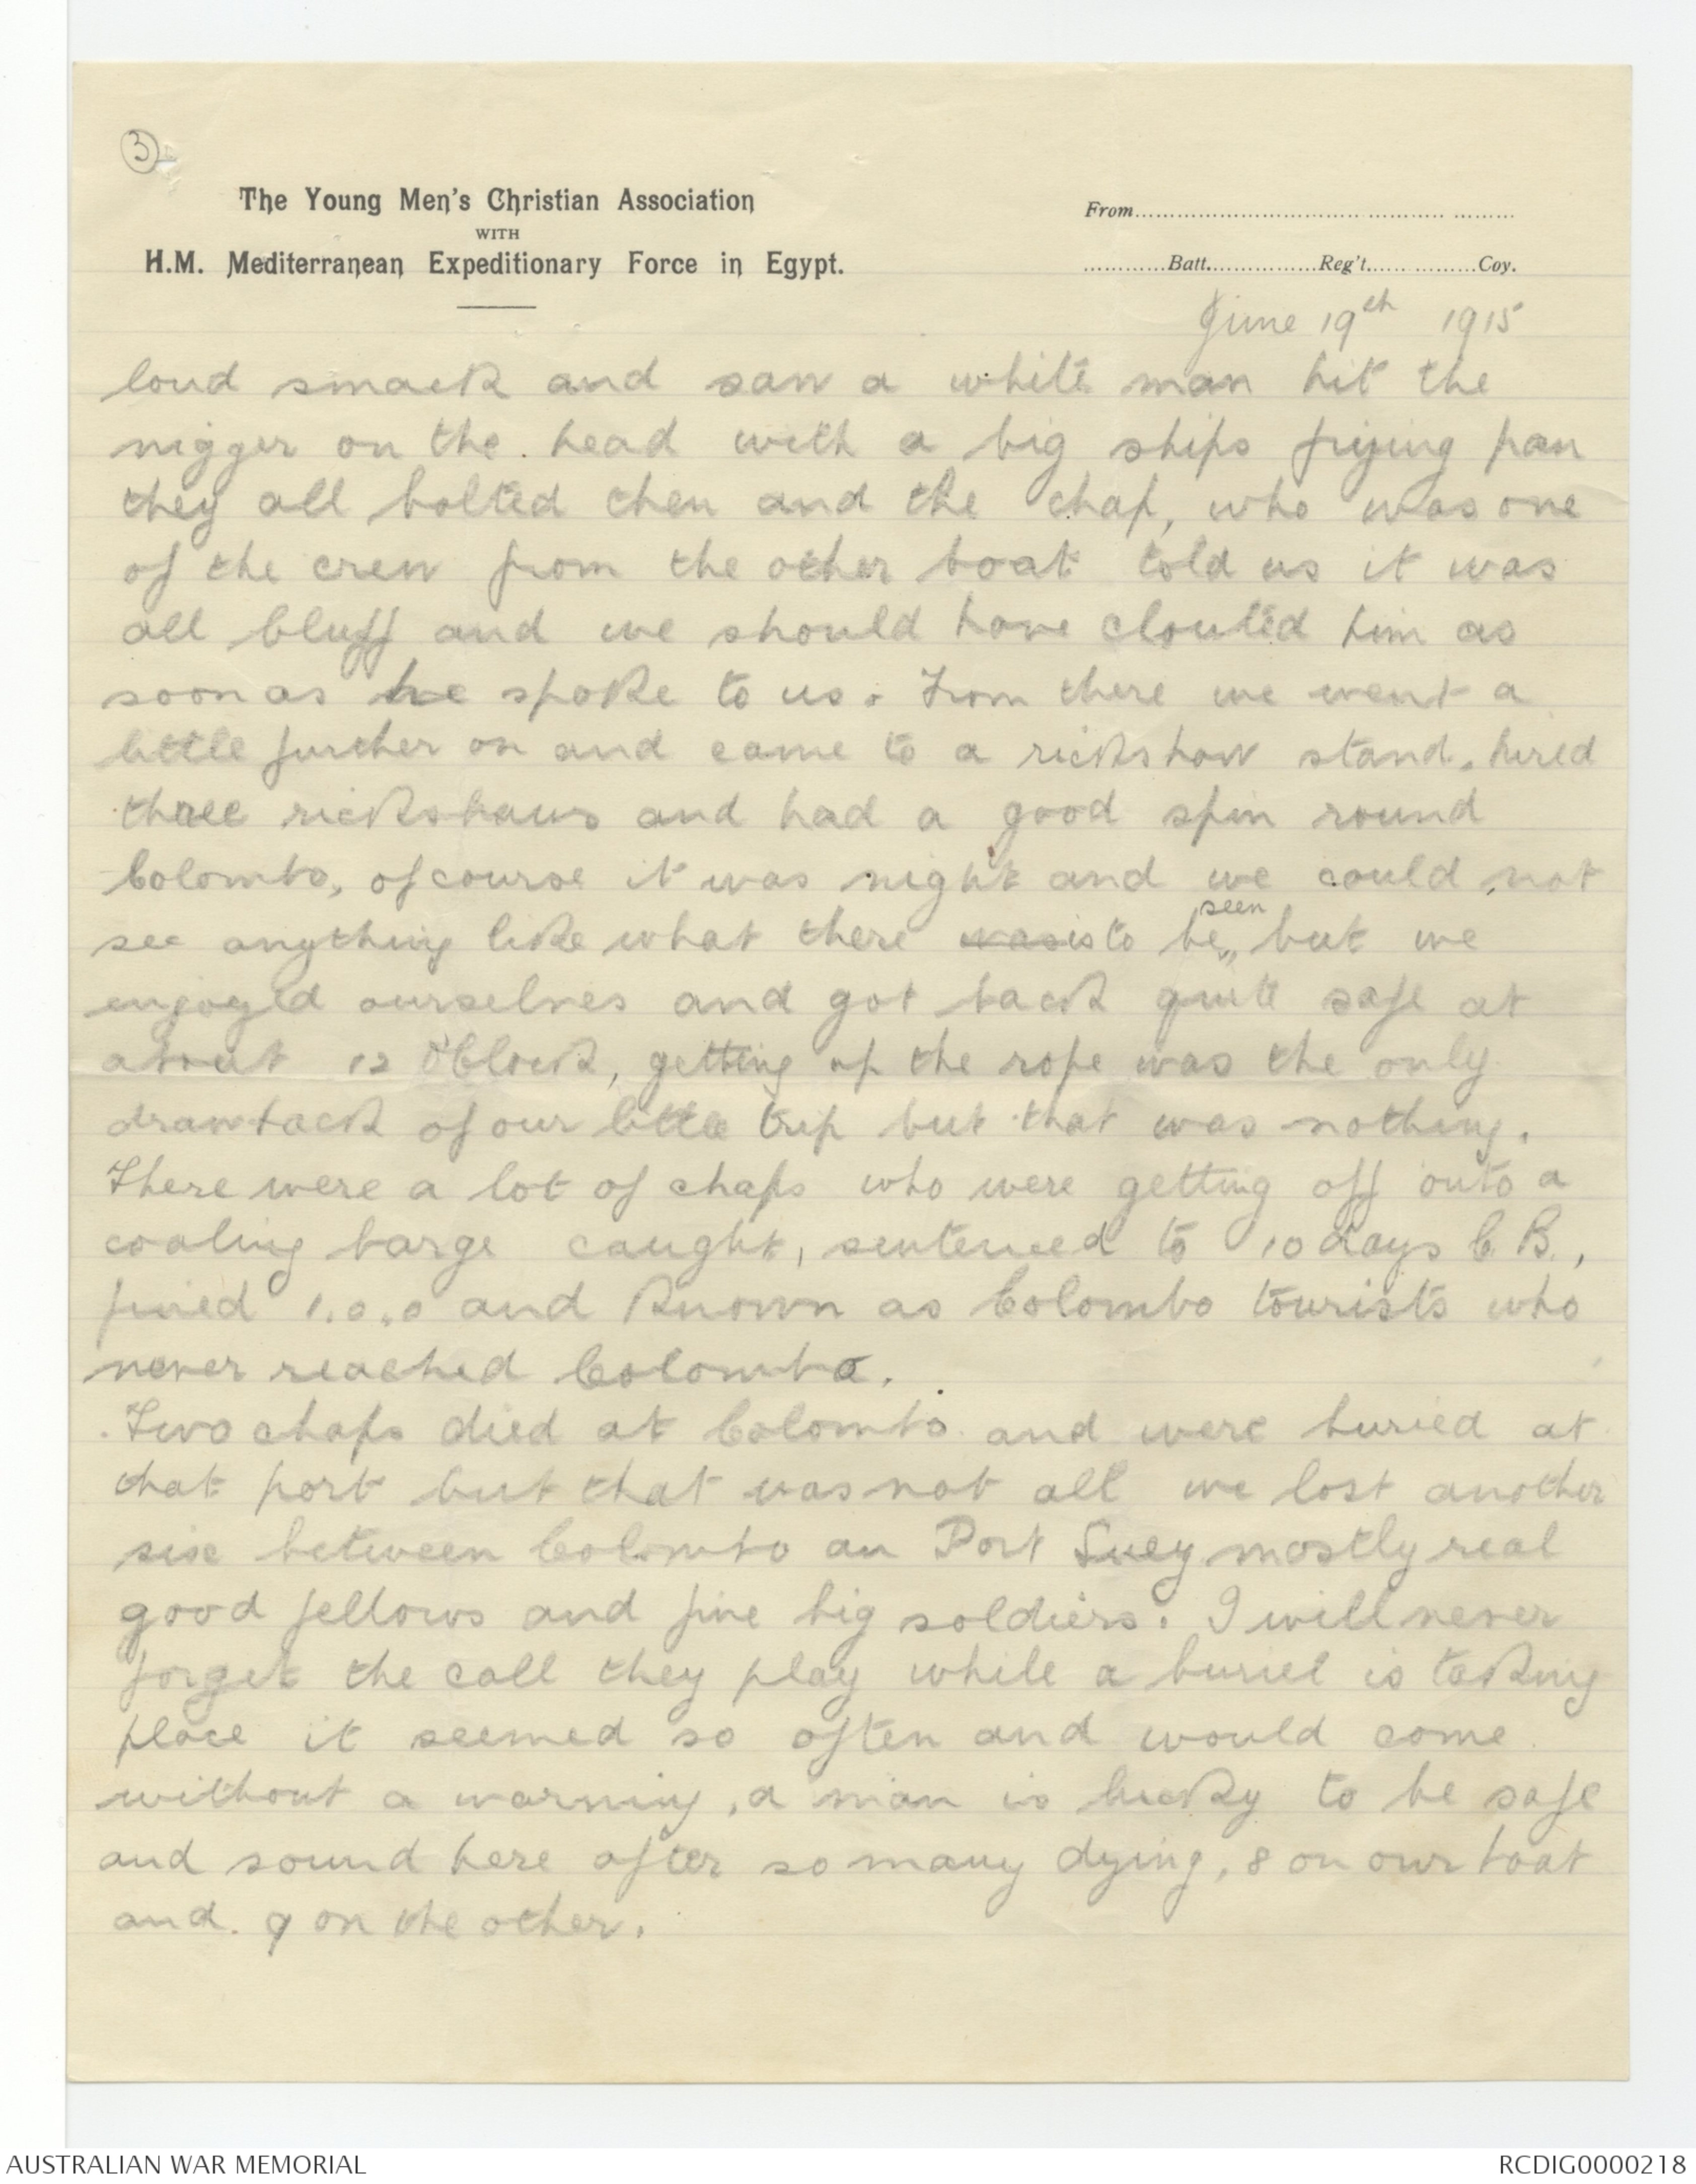 3
The Young Men's Christian Association
WITH
H.M. Mediterranean Expeditionary Force in Egypt.
From..............................................................
............Batt................Reg't...................Coy.
June 19th 1915
loud smack and saw a white man hit the
nigger on the head with a big ships frying pan
they all bolted then and the chap, who was one
of the crew from the other boat told us it was
all bluff and we should have clouted him as
soon as he spoke to us. From there we went a
little further on and came to a rickshaw stand. hired
three rickshaws and had a good spin round
Colombo, of course it was night and we could not
see anything like what there was is to be seen, but we
enjoyed ourselves and got back quite safe at
about 12 O'Clock, getting up the rope was the only
drawback of our little trip but that was nothing.
There were a lot of chaps who were getting off onto a
coaling barge caught, sentenced to 10 days C.B.,
fined 1.0.0 and known as Colombo tourists who
never reached Colombo.
Two chaps died at Colombo and were buried at
that port but that was not all we lost another
six between Colombo an Port Suey mostly real
good fellows and fine big soldiers. I will never
forget the call they play while a buriel is taking
place it seemed so often and would come
without a warning, a man is lucky to be safe
and sound here after so many dying, 8 on our boat
and 9 on the other.
AUSTRALIAN WAR MEMORIAL
RCDIG0000218